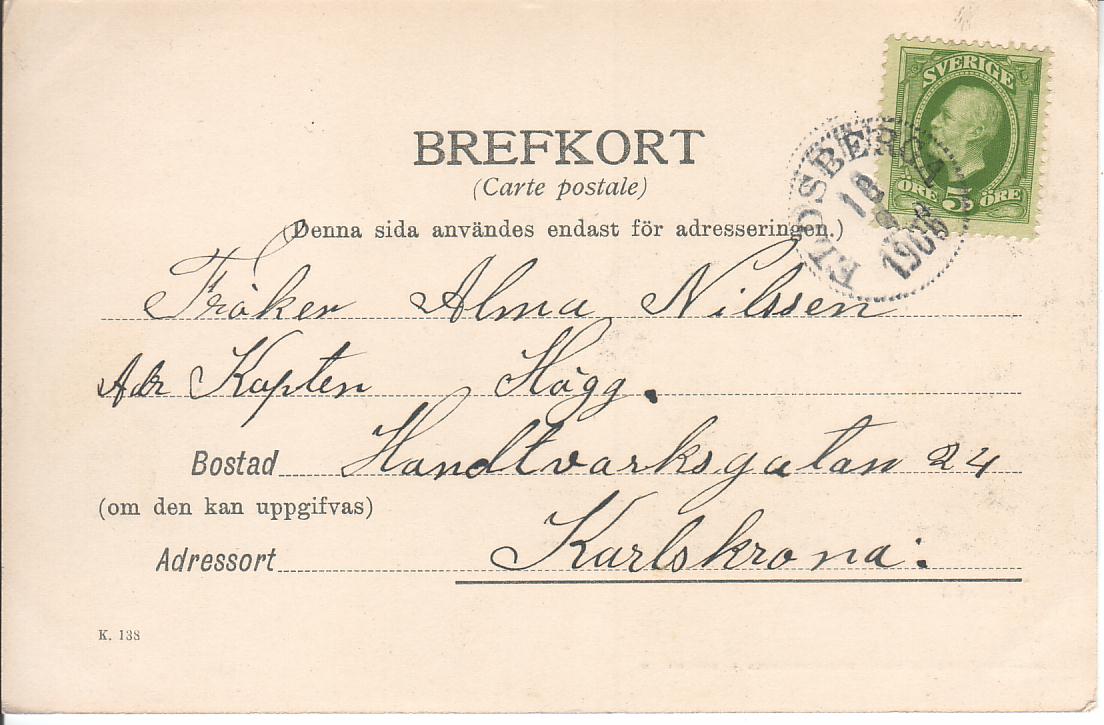 SVERIGE
ÖRE 5 ÖRE
BREFKORT
(Carte postale)
(Denna sida användes endast för adresseringen.)
Fröken Alma Nilssen
Adr Kapten Hägg.
Bostad Handtvarksgatan 24
(om den kan uppgifvas)
Adressort Karlskrona:
K. 138